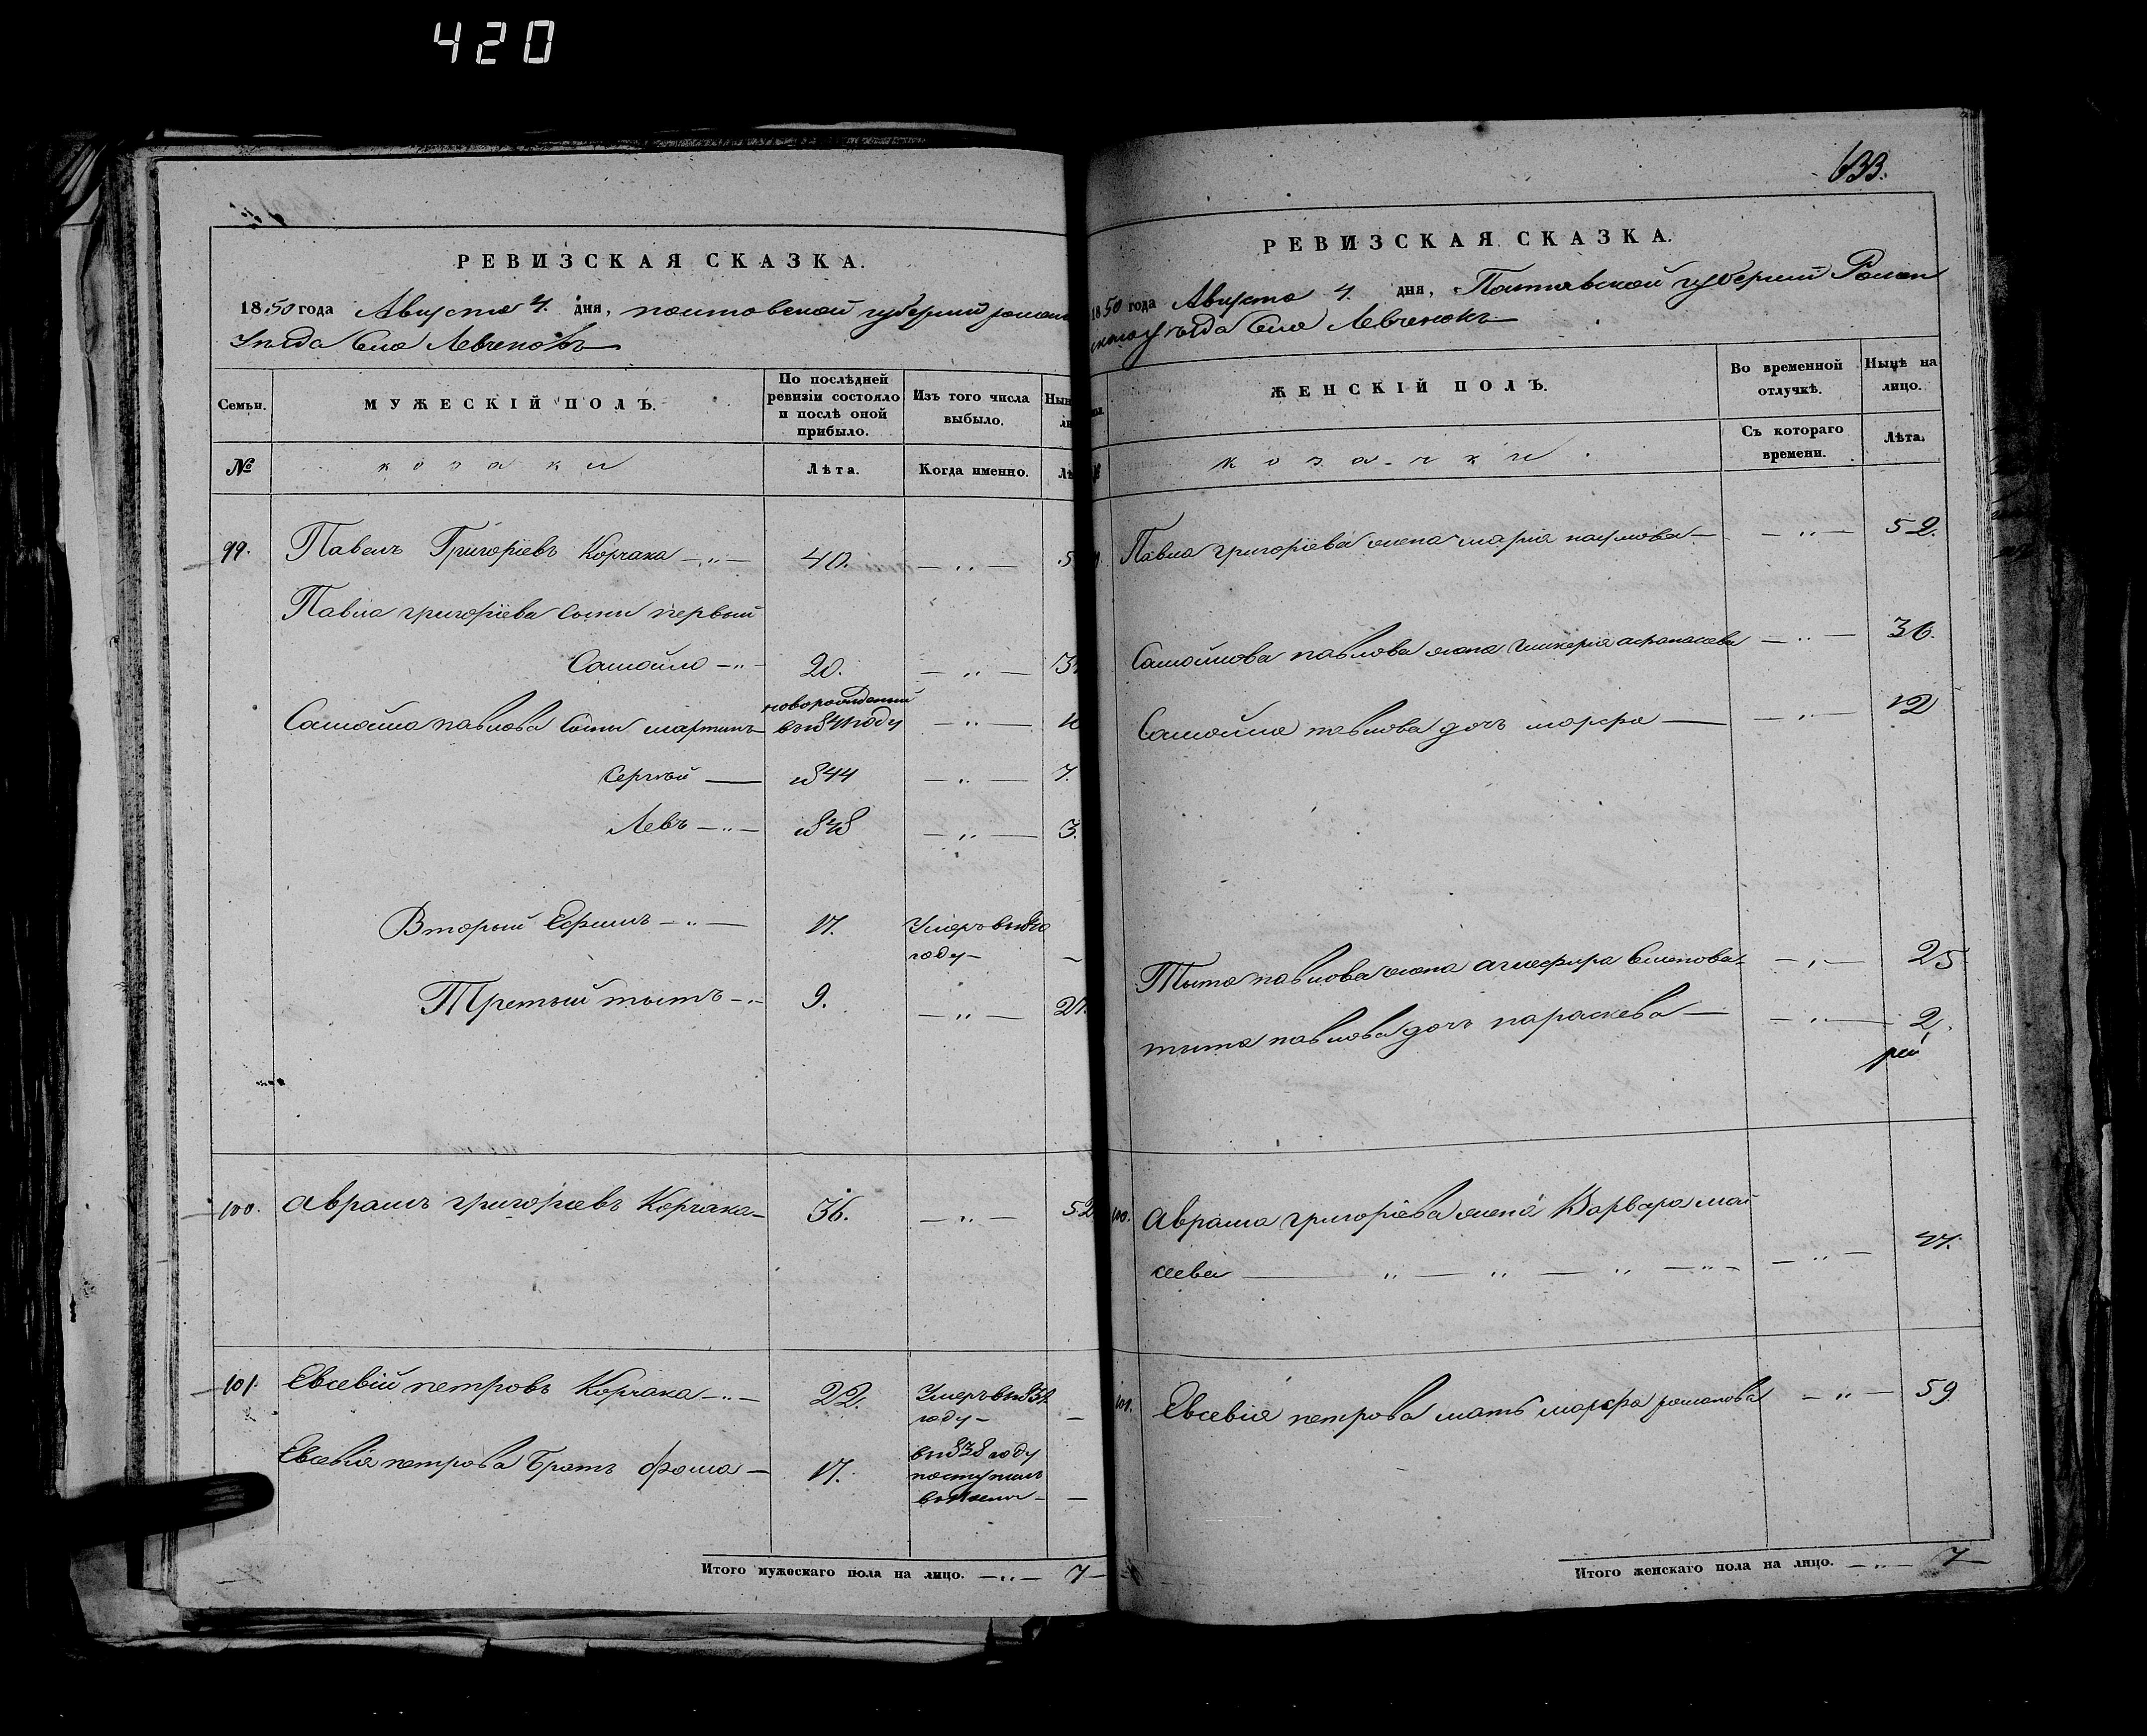 420
633.
РЕВИЗСКАЯ СКАЗКА.
1850 года Августа 4. дня, полтовской губерний ромен
Уезда Села Левченокъ
Семьи.
МУЖЕСКІЙ ПОЛЪ.
По послѣдней ревизіи состояло и послѣ оной прибыло.
Изъ того числа выбыло.
№
козаки
Лѣта.
Когда именно.
99. Павелъ Григоріевъ Корчака 40.
Павла григоріева сынъ первый
Самойло 20.
новорожденный
Самойла павлова сынъ мартинъ в 1841 году
Сергѣй 1844 7.
Левъ 1848 3.
Вторый Ефимъ 17. Умеръ в
году
Третый тытъ 9. 27.
100. Аврамъ григоріевъ Корчака 36. 52
101. Евсевій петровъ Корчака 22. Умеръ в
году
Евсевія петрова Братъ фома 17. в 1838 году
поступилъ
Итого мужескаго пола на лицо. 7
РЕВИЗСКАЯ СКАЗКА.
1850 года Августа 4. дня, Полтавской губерній Ромен
ского уезда Села Левченокъ
ЖЕНСКІЙ ПОЛЪ.
Во временной отлучкѣ.
Нынѣ на лицо.
козачки
Съ котораго времени.
Лѣта.
Павла григоріева жена марія наумова 52.
Самойлова павлова жена гликерія афанасиева 36.
Самойла павлова дочь марфа 12
Тыта павлова жена агафира Семенова 25
тита павлова дочь параскева 2.
100. Аврама григоріева жена Варвара мои
сеева 47.
101. Евсевія петрова мать марфа романова 59.
Итого женскаго пола на лицо. 7